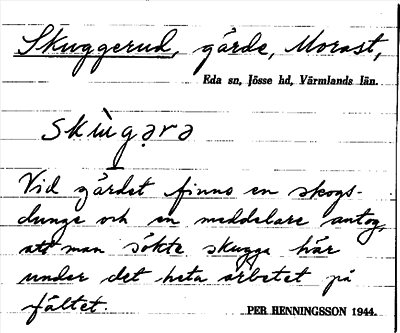 Skuggerud, gärde, Morast,
Eda sn, Jösse hd, Värmlands län.
skùgərə
Vid gärdet finns en skogs-
dunge och en meddelare antog,
att man sökte skugga här
under det heta arbetet på
fältet.
PER HENNINGSSON 1944.